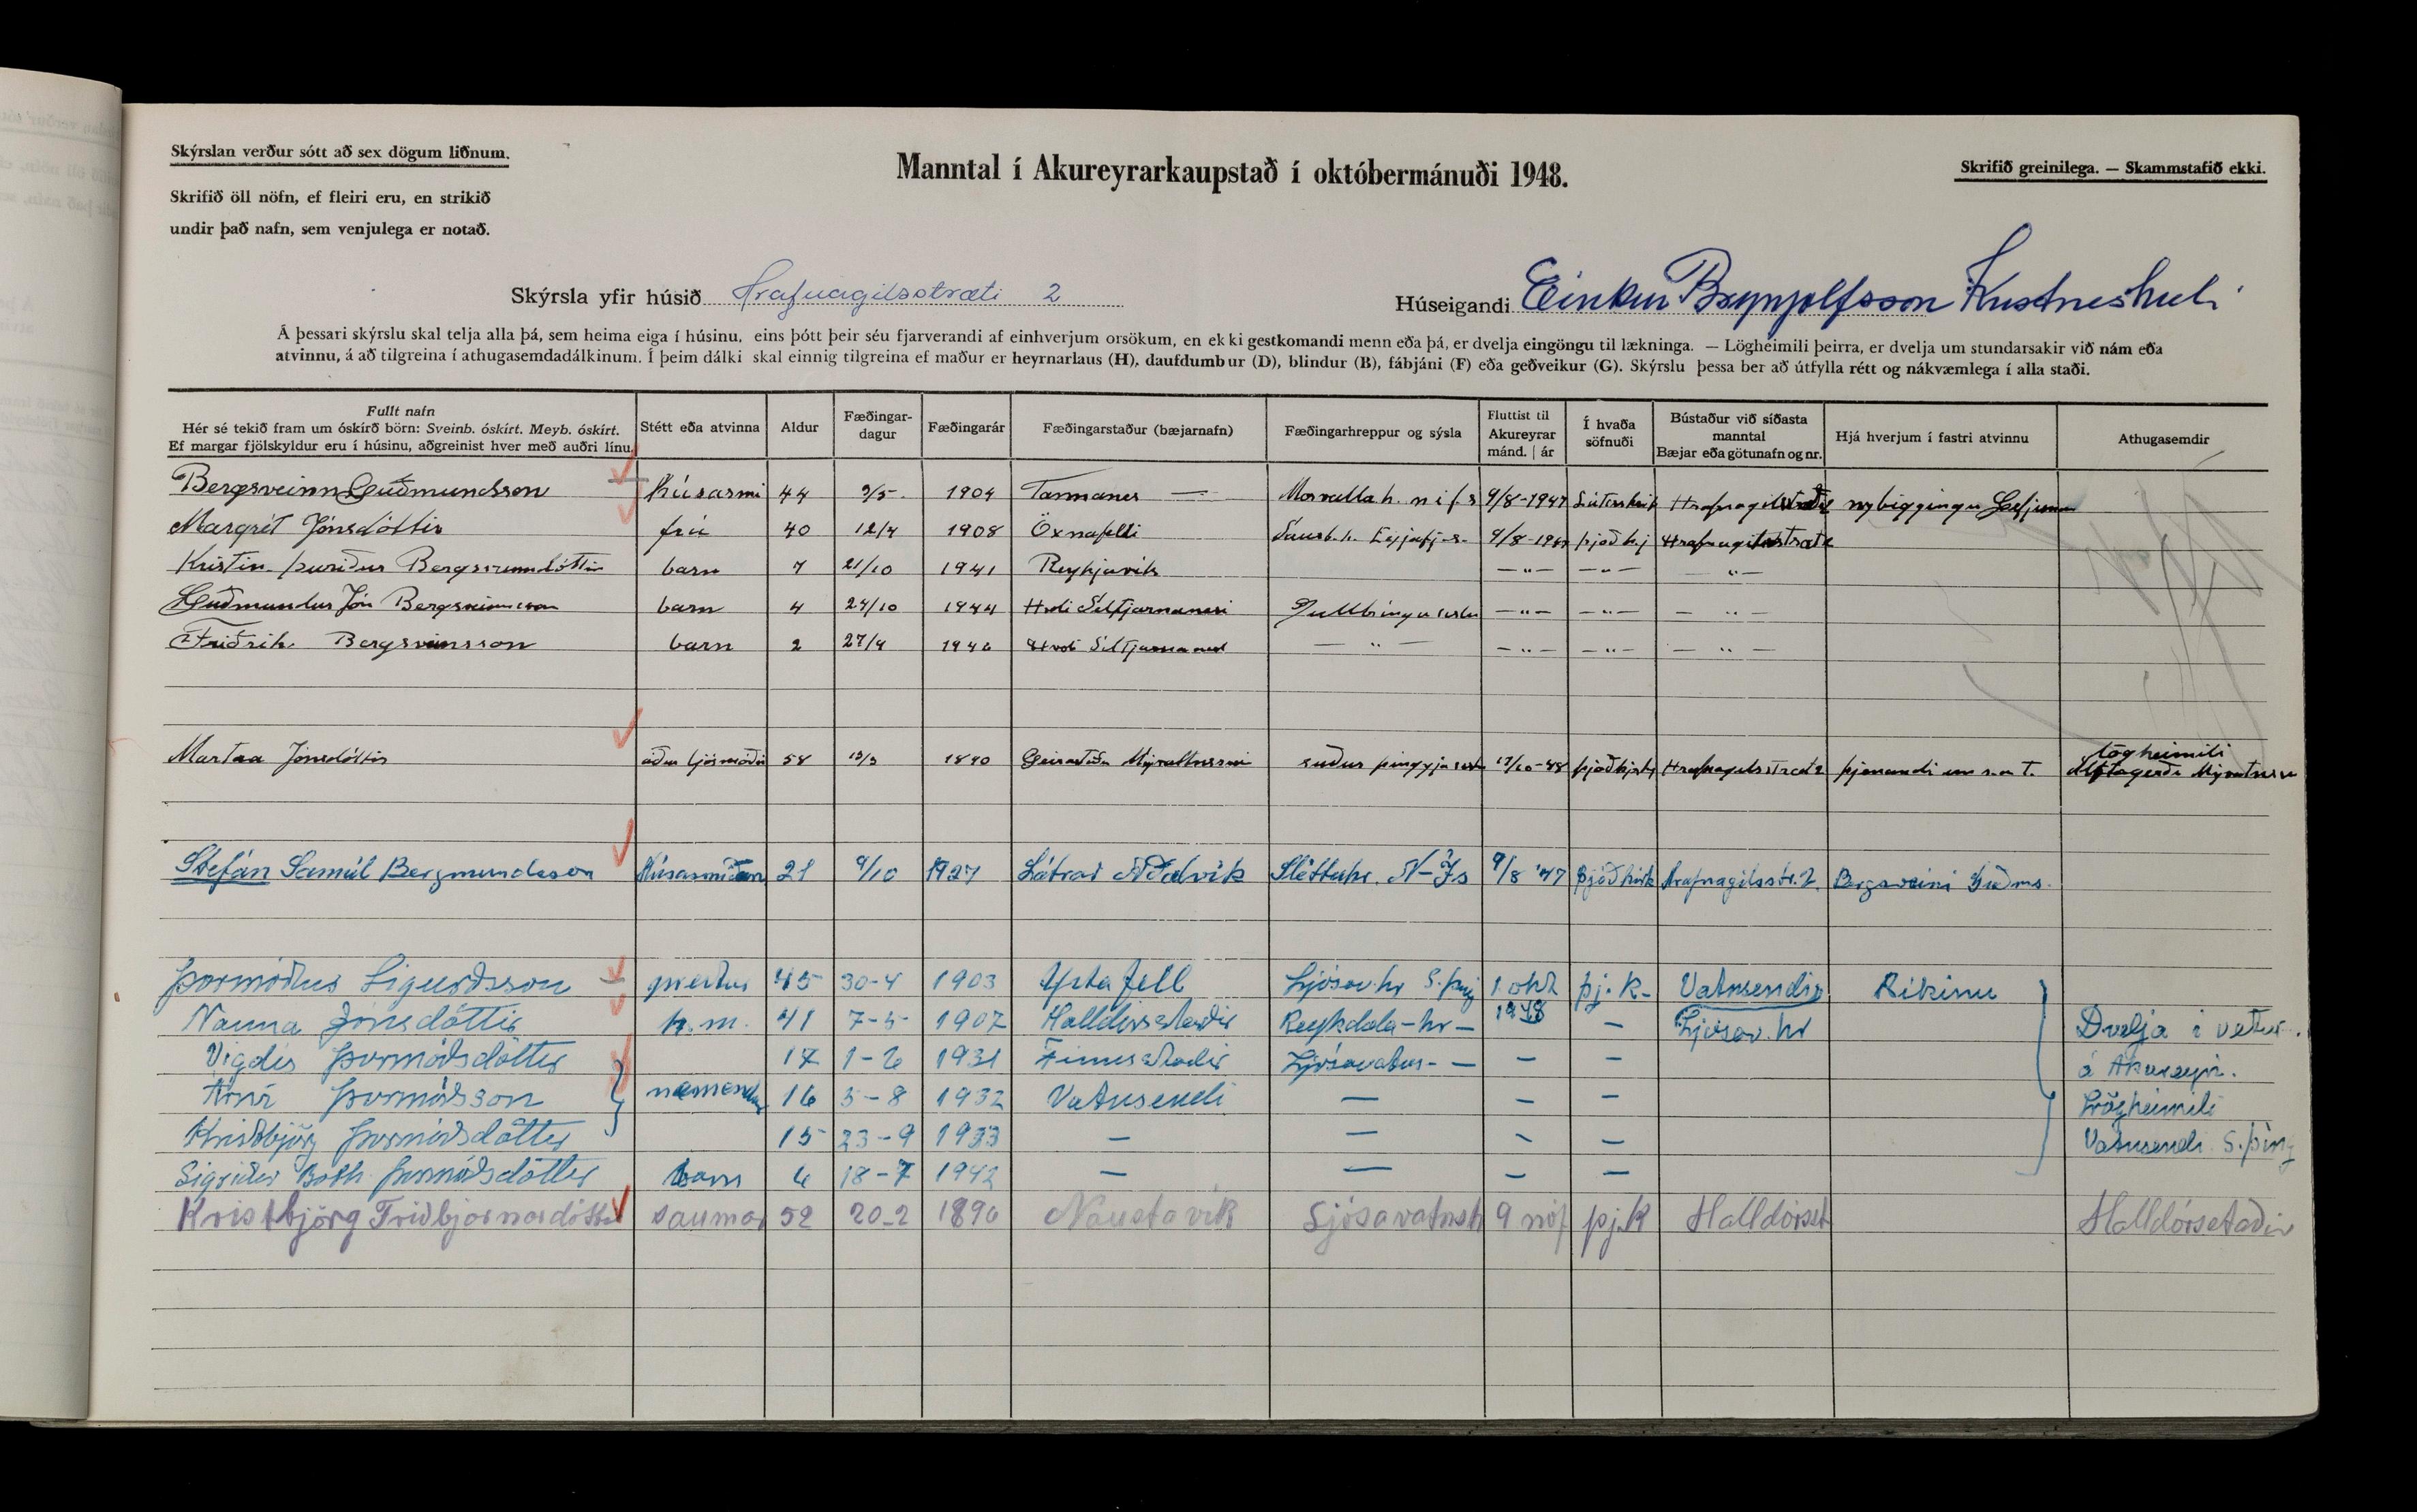 Skýrslan verður sótt að sex dögum liðnum.
Skrifið öll nöfn, ef fleiri eru, en strikið
undir það nafn, sem venjulega er notað.
Manntal í Akureyrarkaupstað í októbermánuði 1948.
Skrifið greinilega. — Skammstafið ekki.
Skýrsla yfir húsið Hrafnagilsstræti 2
Húseigandi Eirikur Brynjolfsson Kristneshæli
Á þessari skýrslu skal telja alla þá, sem heima eiga í húsinu, eins þótt þeir séu fjarverandi af einhverjum orsökum, en ekki gestkomandi menn eða þá, er dvelja eingöngu til lækninga. — Lögheimili þeirra, er dvelja um stundarsakir við nám eða
atvinnu, á að tilgreina í athugasemdadálkinum. Í þeim dálki skal einnig tilgreina ef maður er heyrnarlaus (H), daufdumbur (D), blindur (B), fábjáni (F) eða geðveikur (G). Skýrslu þessa ber að útfylla rétt og nákvæmlega í alla staði.
Fullt nafn
Hér sé tekið fram um óskírð börn: Sveinb. óskírt. Meyb. óskírt.
Ef margar fjölskyldur eru í húsinu, aðgreinist hver með auðri línu.
Stétt eða atvinna
Aldur
Fæðingar-
dagur
Fæðingarár
Fæðingarstaður (bæjarnafn)
Fæðingarhreppur og sýsla
Fluttist til
Akureyrar
mánd. | ár
Í hvaða
söfnuði
Bústaður við síðasta
manntal
Bæjar eða götunafn og nr.
Hjá hverjum í fastri atvinnu
Athugasemdir
Bergsveinn Guðmundsson húsasmi 44 1904 9/8-1947
Margrét Jónsdóttir frú 40 12/4 1908 Öxnafelli Saurb.h. Eyjafj.s. þjóðkj Hrafnagilsstræti
Kristín Þuríður Bergsveinsdóttir barn 7 21/10 1941 Reykjavík — " — — " — — " —
Guðmundur Jón Bergsveinsson barn 4 24/10 1944 Seltjarnarnesi Gullbringusýslu — " — — " — — " —
Friðrik Bergsveinsson barn 2 27/9 1946 — " — — " — — " — — " —
lögheimili
Martha Jónsdóttir ljósmóðir 58 1890 suður þingeyjarsýslu þjóðkirkj Hrafnagilsstræti 2 Álftagerði Mývatnssv
Stefán Samúl Bergmundsson Húsasmíðan 21 9/10 1927 Látrar Aðalvík Sléttuhr. N-Ís 9/8 '47 Þjóðkirk Hrafnagilsstr. 2 Bergsveini Guðms.
Þormóður Sigurðsson prestur 45 30-4 1903 Ysta fell Ljósav.hr S.þing 1. okt þj.k- Vatnsendi Ríkinu
Nanna Jónsdóttir h.m. 41 7-5 1907 Halldórsstaðir Reykdæla-hr — 1948 — Ljósav.hr Dvelja í vetur
Vigdís Þormóðsdóttir 17 1-6 1931 Finnsstaðir Ljósavatns- — — — á Akureyri.
Árni Þormóðsson nemendur 16 5-8 1932 Vatnsendi — — — Lögheimili
Kristbjörg Þormóðsdóttir 15 23-9 1933 — — — — Vatnsendi S.þing
Sigríður Þormóðsdóttir barn 6 18-7 1942 — — — —
Kristbjörg Friðbjarnardóttir saumar 52 20-2 1896 Naustavík Ljósavatnsh 9 nóf þj.k Halldórsst Halldórsstaðir